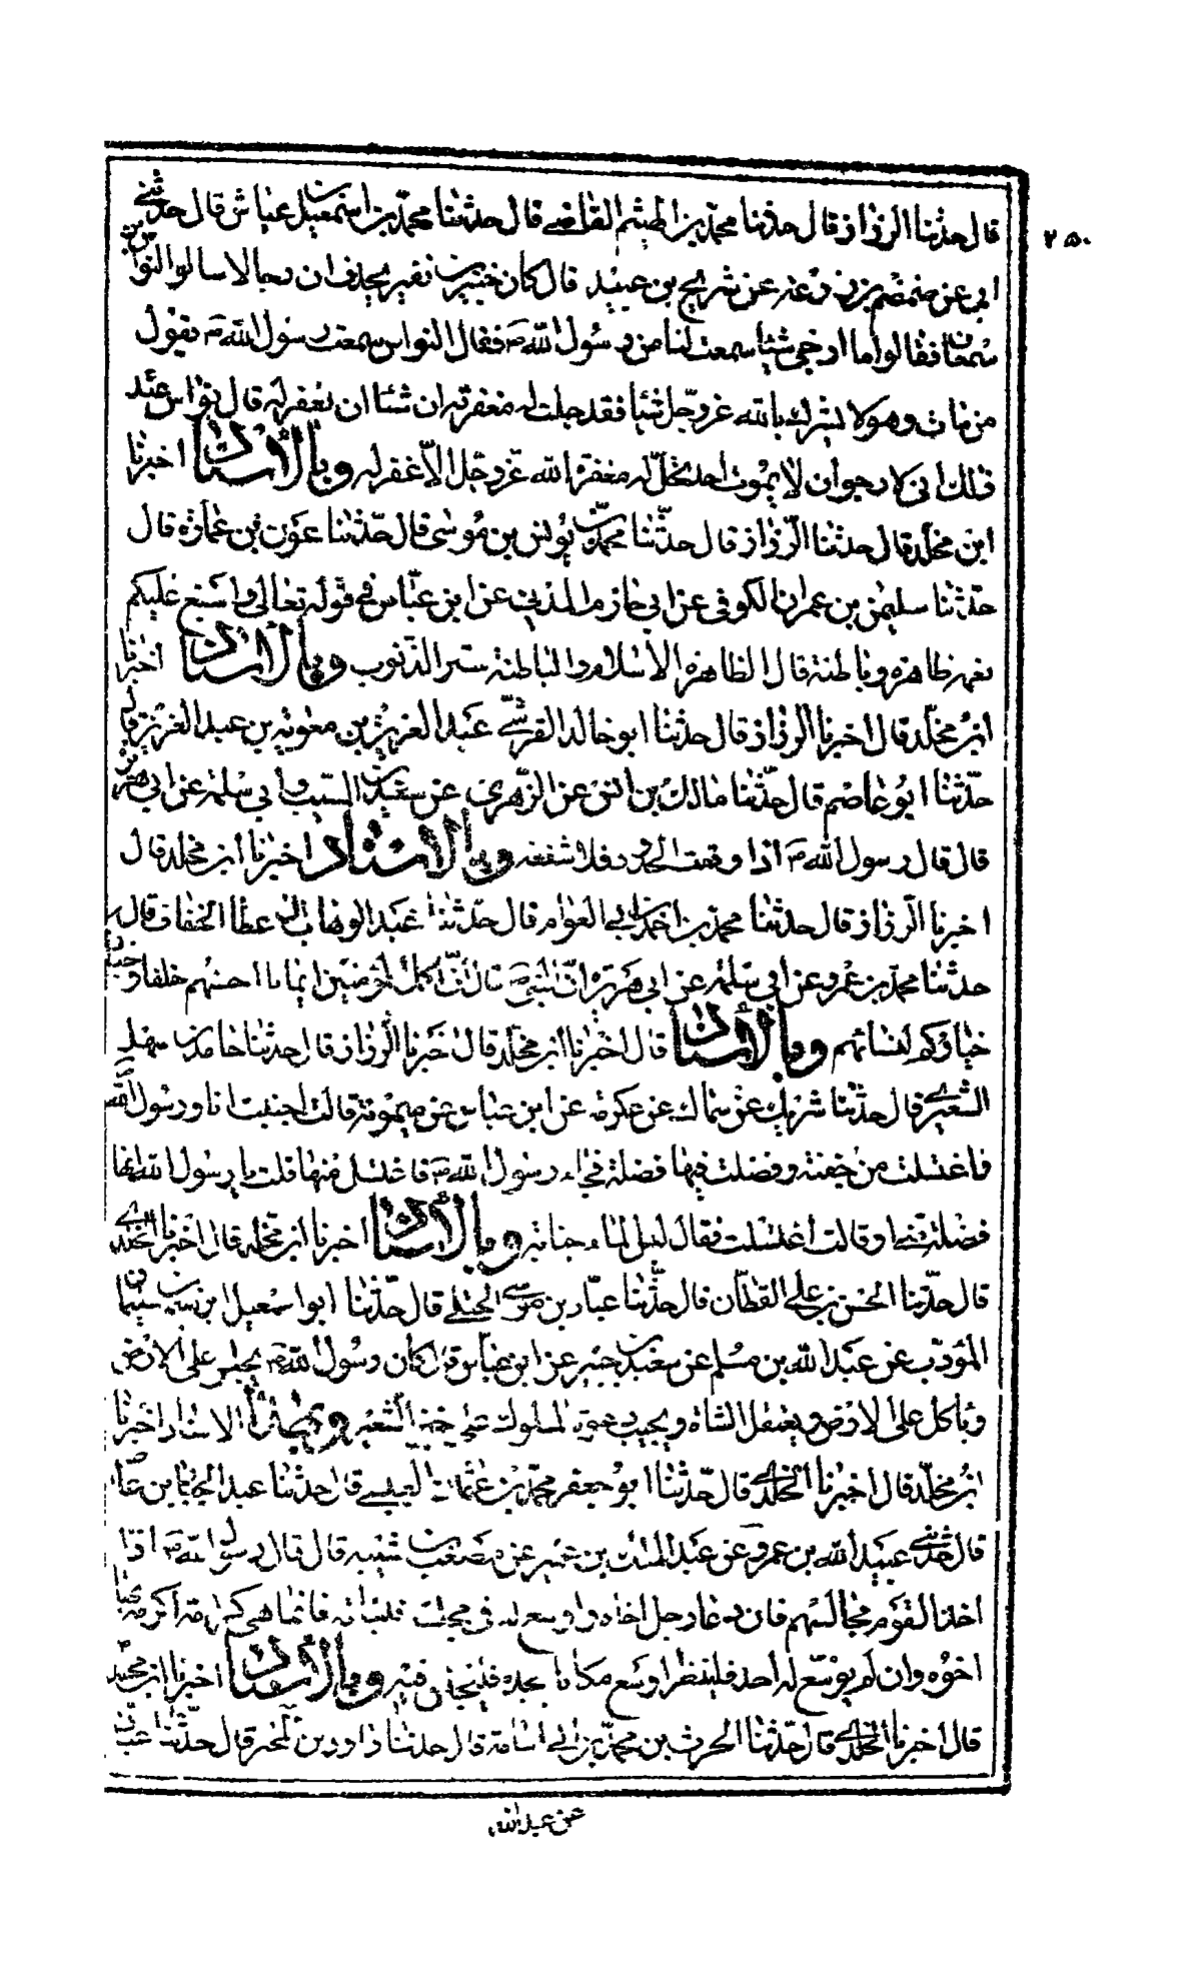 ٢٥٠
قال حدثنا الرزاز قال حدثنا محمد بن الهيثم القاضي قال حدثنا محمد بن اسمعيل بن عياش قال حدثني
ابي عن ضمضم بن زرعة عن شريح بن عبيد قال كان خبير بن نفير يحدث ان رجالا سالوا النواس بن
سمعان فقالوا ما ارجى شيئا سمعت لنا من رسول الله ص فقال النواس سمعت رسول الله ص يقول
من مات وهو لا يشرك بالله عز وجل شيئا فقد حلت له مغفرته ان شاء ان يغفر له قال نواس عند
ذلك انى لارجو ان لا يموت احد تحل له مغفرة الله عز وجل الا غفر له وبالأسناد اخبرنا
ابن مخلد قال حدثنا الرزاز قال حدثنا محمد بن يونس بن موسى قال حدثنا عون بن عمارة قال
حدثنا سليمن بن عمران الكوفى عن ابي حازم المدني عن ابن عباس في قوله تعالى واسبغ عليكم
نعمه ظاهرة وباطنة قال الظاهرة الاسلام والباطنة ستر الذنوب وبالأسناد اخبرنا
ابن مخلد قال اخبرنا الرزاز قال حدثنا ابو خالد القرشي عبد العزيز بن معوية بن عبد العزيز قال
حدثنا ابو عاصم قال حدثنا مالك بن انس عن الزهرى عن سعيد بن المسيب وابي سلمة عن ابي هريرة
قال قال رسول الله ص اذا وقعت الحدود فلا شفعة وبالأسناد اخبرنا ابن مخلد قال
اخبرنا الرزاز قال حدثنا محمد بن احمد بن ابي العوام قال حدثنا عبد الوهاب بن عطا الخفاف قال
حدثنا محمد بن عمرو عن ابي سلمة عن ابي هريرة ان النبي ص قال ان اكمل المؤمنين ايمانا احسنهم خلقا وخياركم
خياركم لنسائهم وبالأسناد قال اخبرنا ابن مخلد قال اخبرنا الرزاز قال حدثنا حامد بن سهل
الثغري قال حدثنا شريك عن سماك عن عكرمة عن ابن عباس عن ميمونة قالت اجنبت انا ورسول الله ص
فاغتسلت من جفنة وفضلت فيها فضلة فجاء رسول الله ص فاغتسل منها فقلت يا رسول الله انها
فضلة مني او قالت اغتسلت فقال ليس الماء جنابة وبالأسناد اخبرنا ابن مخلد قال اخبرنا الخلدي
قال حدثنا الحسن بن علي القطان قال حدثنا عباد بن موسى الختلي قال حدثنا ابو اسمعيل ابراهيم بن سليمان
المؤدب عن عبد الله بن مسلم عن سعيد بن جبير عن ابن عباس قال كان رسول الله ص يجلس على الارض
وياكل على الارض ويعتقل الشاة ويجيب دعوة المملوك على خبز الشعير وبهذا الاسناد اخبرنا
ابن مخلد قال اخبرنا الخلدي قال حدثنا ابو جعفر محمد بن عثمان العبسي قال حدثنا عبد الجبار بن عاصم
قال حدثني عبيد الله بن عمرو عن عبد الملك بن عمير عن مصعب بن شيبة قال قال رسول الله ص اذا
اخذ القوم مجالسهم فان دعا رجل اخاه واوسع له في مجلسه فلياته فانما هي كرامة اكرمه بها
اخوه وان لم يوسع له احد فلينظر اوسع مكان يجده فليجلس فيه وبالأسناد اخبرنا ابن مخلد
قال اخبرنا الخلدي قال حدثنا الحرث بن محمد بن ابي اسامة قال حدثنا داود بن المحبر قال حدثنا عباد
عن عبد الله